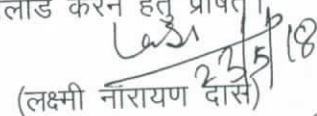 लोड करने हेतु प्रेषित।
23/5/18
(लक्ष्मी नारायण दास)